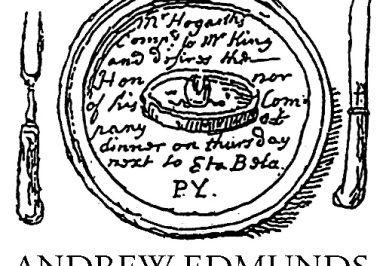 Mr Hogarth's
Comps to Mr King
and desires the
Honnor
of his Com=
pany at
dinner on thursday
next to Eta Beta.
P.Y.
ANDREW EDMUNDS